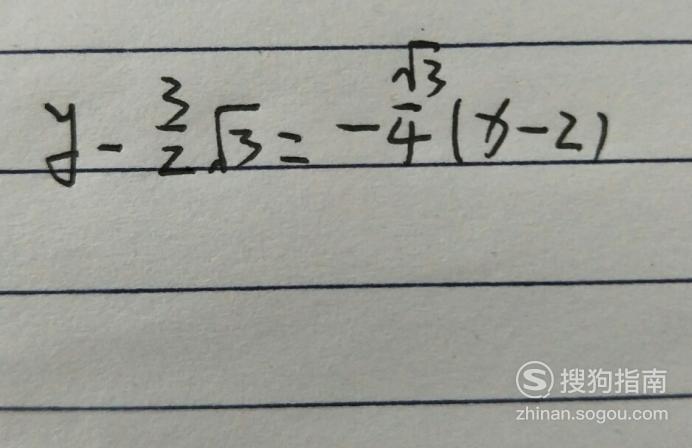 y - 3/2 √3 = - √3/4 (x - 2)
搜狗指南
zhinan.sogou.com